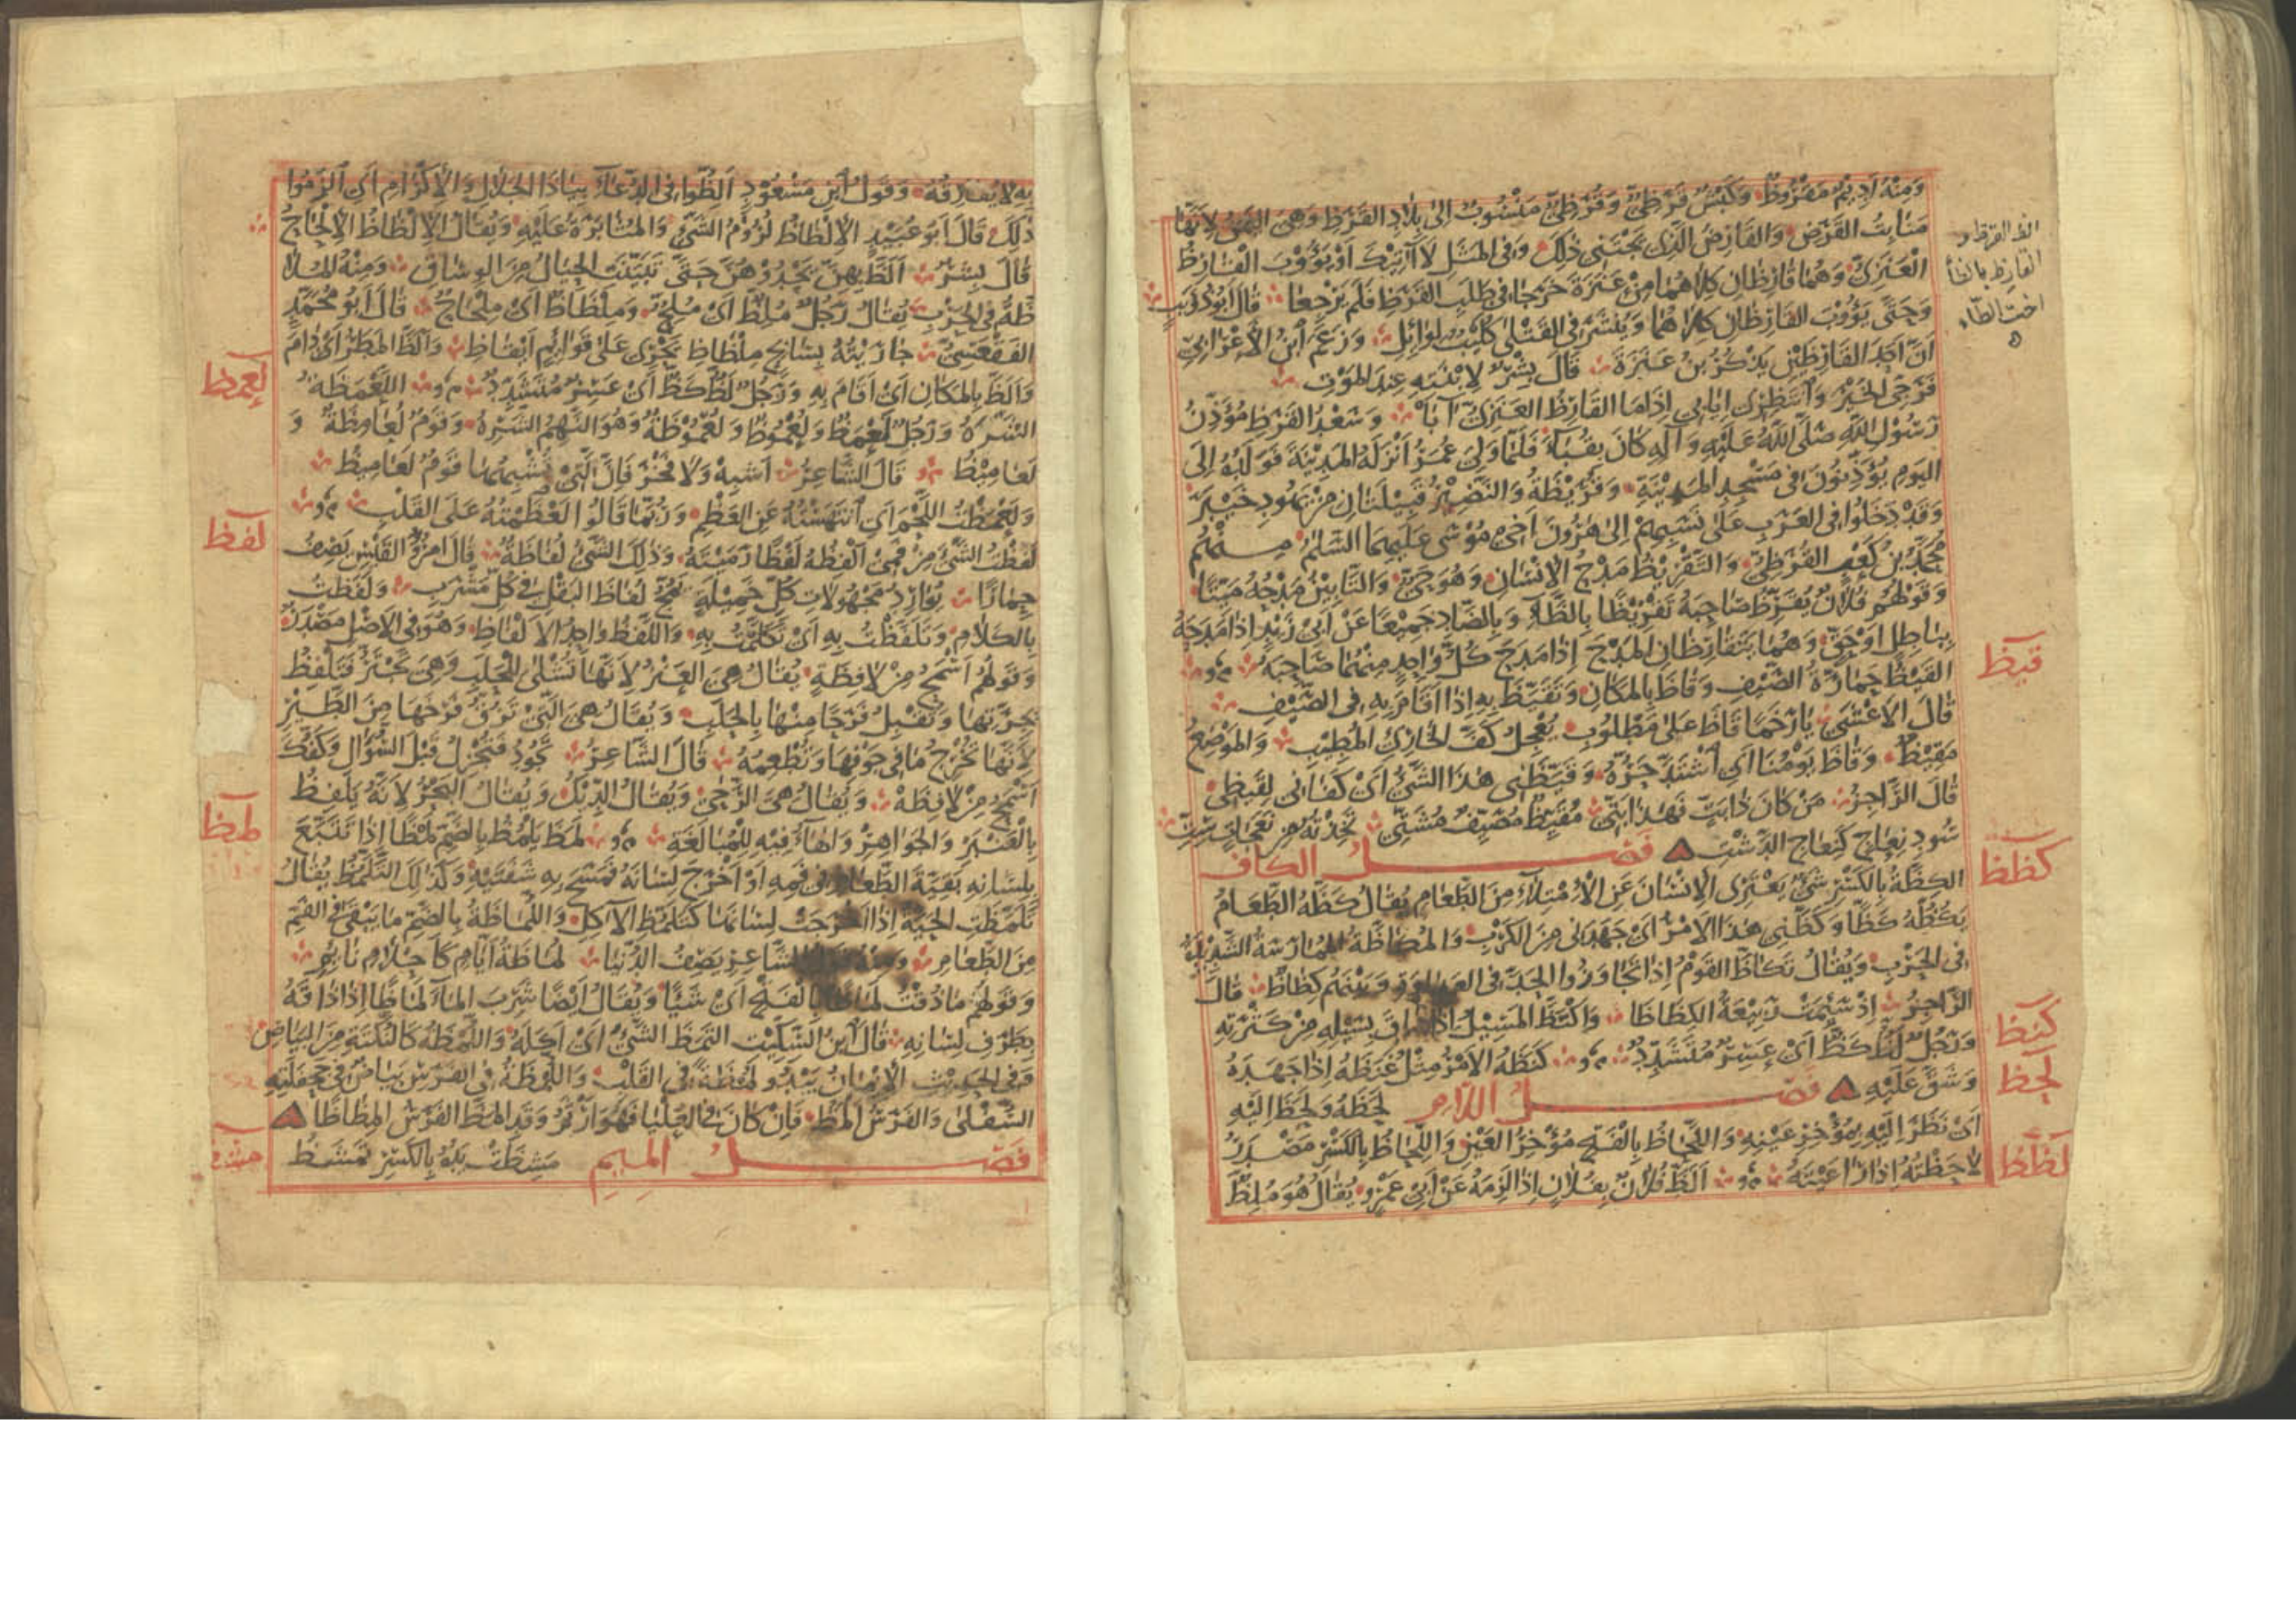 وَمِنْهُ اَدِيْمٌ مَقْرُوظٌ وَكَبْشٌ قَرَظِيٌّ وَقُرَظِيٌّ مَنْسُوبٌ اِلىٰ بِلَادِ القَرَظِ وَهِىَ اليَمَنُ لِاَنَّهَا
مَنَابِتُ القَرَظِ وَالقَارِظُ الَّذِى يَجْتَنِى ذٰلِكَ وَفِى المَثَلِ لَا آتِيْكَ اَوْ يَؤُوْبَ القَارِظُ
العَنَزِىُّ وَهُمَا قَارِظَانِ كِلَاهُمَا مِنْ عَنَزَةَ خَرَجَا فِى طَلَبِ القَرَظِ فَلَمْ يَرْجِعَا قَالَ اَبُو ذُؤَيْبٍ
وَحَتّىٰ يَؤُوْبَ القَارِظَانِ كِلَاهُمَا وَيُنْشَرَ فِى القَتْلىٰ كُلَيْبٌ لِوَائِلِ وَزَعَمَ ابْنُ الْاَعْرَابِىِّ
اَنَّ اَحَدَ القَارِظَيْنِ يَذْكُرُ بْنُ عَنَزَةَ قَالَ بِشْرٌ لِابْنَتِهِ عِنْدَ المَوْتِ
فَرَجِّى الخَيْرَ وَانْتَظِرِى اِيَابِى اِذَا مَا القَارِظُ العَنَزِىُّ آبَا وَسَعْدُ القَرَظِ مُؤَذِّنُ
رَسُوْلِ اللّٰهِ صَلَّى اللّٰهُ عَلَيْهِ وَآلِهِ كَانَ بِقُبَاءَ فَلَمَّا وَلِىَ عُمَرُ اَنْزَلَهُ المَدِيْنَةَ فَوَلَدُهُ اِلىَ
اليَوْمِ يُؤَذِّنُوْنَ فِى مَسْجِدِ المَدِيْنَةِ وَقُرَيْظَةُ وَالنَّضِيْرُ قَبِيْلَتَانِ مِنْ يَهُودِ خَيْبَرَ
وَقَدْ دَخَلُوا فِى العَرَبِ عَلىٰ نَسَبِهِمْ اِلىٰ هٰرُونَ اَخِى مُوْسٰى عَلَيْهِمَا السَّلٰمُ مِنْهُمْ
مُحَمَّدُ بْنُ كَعْبٍ القُرَظِىُّ وَالتَّقْرِيْظُ مَدْحُ الْاِنْسَانِ وَهُوَ حَىٌّ وَالتَّأْبِيْنُ مَدْحُهُ مَيِّتًا
وَقَوْلُهُمْ فُلَانٌ يُقَرِّظُ صَاحِبَهُ تَقْرِيْظًا بِالظَّاءِ وَبِالضَّادِ جَمِيْعًا عَنْ اَبِى زَيْدٍ اِذَا مَدَحَهُ
بِبَاطِلٍ اَوْ حَقٍّ وَهُمَا يَتَقَارَظَانِ المَدْحَ اِذَا مَدَحَ كُلُّ وَاحِدٍ مِنْهُمَا صَاحِبَهُ
القَيْظُ حَمَارَّةُ الصَّيْفِ وَقَاظَ بِالمَكَانِ وَتَقَيَّظَ بِهِ اِذَا اَقَامَ بِهِ فِى الصَّيْفِ
قَالَ الْاَعْشىٰ يَا رَخَمًا قَاظَ عَلىٰ مَطْلُوبِ يُعْجِلُ كَفَّ الخَارِئِ المُطِيْبِ وَالمَوْضِعُ
مَقِيْظٌ وَقَاظَ يَوْمُنَا اَىِ اشْتَدَّ حَرُّهُ وَقَيَّظَنِى هٰذَا الشَّىْءُ اَىْ كَفَانِى لِقَيْظِى
قَالَ الرَّاجِزُ مَنْ كَانَ ذَا بَتٍّ فَهٰذَا بَتِّى مُقَيِّظٌ مُصَيِّفٌ مُشَتِّى تَخِذْتُهُ مِنْ نَعَجَاتٍ سِتِّ
سُودٍ نِعَاجٍ كَنِعَاجِ الدَّشْتِ فَصْلُ الكاف
الكِظَّةُ بِالكَسْرِ شَىْءٌ يَعْتَرِى الْاِنْسَانَ عَنِ الْاِمْتِلَاءِ مِنَ الطَّعَامِ يُقَالُ كَظَّهُ الطَّعَامُ
يَكُظُّهُ كَظًّا وَكَظَّنِى هٰذَا الْاَمْرُ اَىْ جَهَدَنِى مِنَ الكَرْبِ وَالمُكَاظَّةُ المُمَارَسَةُ الشَّدِيْدَةُ
فِى الحَرْبِ وَيُقَالُ تَكَاظَّ القَوْمُ اِذَا تَجَاوَزُوا الحَدَّ فِى العَدَاوَةِ وَبَيْنَهُمْ كِظَاظٌ قَالَ
الرَّاجِزُ اِذْ سَئِمَتْ رَبِيْعَةُ الكِظَاظَا وَاكْتَظَّ المَسِيْلُ اِذَا ضَاقَ بِسَيْلِهِ مِنْ كَثْرَتِهِ
وَرَجُلٌ لَظٌّ كَظٌّ اَىْ عَسِرٌ مُتَشَدِّدٌ كَنَظَهُ الْاَمْرُ مِثْلُ غَنَظَهُ اِذَا جَهَدَهُ
وَشَقَّ عَلَيْهِ فَصْلُ اللام لَحَظَهُ وَلَحَظَ اِلَيْهِ
اَىْ نَظَرَ اِلَيْهِ بِمُؤْخِرِ عَيْنِهِ وَاللَّحَاظُ بِالْفَتْحِ مُؤْخِرُ العَيْنِ وَاللِّحَاظُ بِالكَسْرِ مَصْدَرُ
لَاحَظْتُهُ اِذَا رَاعَيْتَهُ اَلَظَّ فُلَانٌ بِفُلَانٍ اِذَا لَزِمَهُ عَنْ اَبِى عَمْرٍو يُقَالُ هُوَ مُلِظٌّ
القرظ و
القارظ بالظاء
اخت الطاء
قيظ
كظظ
كنظ
لحظ
لظظ
بِهِ لَا يُفَارِقُهُ وَقَوْلُ ابْنِ مَسْعُوْدٍ اَلِظُّوا فِى الدُّعَاءِ بِيَا ذَا الجَلَالِ وَالْاِكْرَامِ اَىِ الْزَمُوا
ذٰلِكَ قَالَ اَبُو عُبَيْدٍ الْاِلْظَاظُ لُزُوْمُ الشَّىْءِ وَالمُثَابَرَةُ عَلَيْهِ وَيُقَالُ الْاِلْظَاظُ الْاِلْحَاحُ
قَالَ بِشْرٌ اَلَظَّ بِهِنَّ يَحْدُوْهُنَّ حَتّىٰ تَبَيَّنَتِ الحِيَالُ مِنَ الوِسَاقِ وَمِنْهُ المُلَا
ظَّةُ فِى الحَرْبِ يُقَالُ رَجُلٌ مُلِظٌّ اَىْ مُلِحٌّ وَمِلْظَاظٌ اَىْ مِلْحَاحٌ قَالَ اَبُو مُحَمَّدٍ
الفَقْعَسِىُّ جَارَيْتُهُ بِسَابِحٍ مِلْظَاظِ يَجْرِى عَلىٰ قَوَائِمٍ اَيْقَاظِ وَاَلَظَّ المَطَرُ اَىْ دَامَ
وَاَلَظَّ بِالمَكَانِ اَىْ اَقَامَ بِهِ وَرَجُلٌ لَظٌّ كَظٌّ اَىْ عَسِرٌ مُتَشَدِّدٌ اللَّعْمَظَةُ
الشَّرَهُ وَرَجُلٌ لَعْمَظٌ وَلُعْمُوظٌ وَلُعْمُوْظَةٌ وَهُوَ النَّهِمُ الشَّرِهُ وَقَوْمٌ لَعَامِظَةٌ وَ
لَعَامِيْظُ قَالَ الشَّاعِرُ اَشْبِهْ وَلَا فَخْرَ فَاِنَّ الَّتِىْ تُشْبِهُهَا قَوْمٌ لَعَامِيْظُ
وَلَعْمَظْتُ اللَّحْمَ اَىِ انْتَهَسْتُهُ عَنِ العَظْمِ وَرُبَّمَا قَالُوا لَعْظَمْتُهُ عَلَى القَلْبِ
لَفَظْتُ الشَّىْءَ مِنْ فَمِىْ اَلْفِظُهُ لَفْظًا رَمَيْتُهُ وَذٰلِكَ الشَّىْءُ لُفَاظَةٌ قَالَ امْرُؤُ القَيْسِ يَصِفُ
حِمَارًا يُوَارِدُ مَجْهُولَاتِ كُلِّ خَمِيْلَةٍ يَمُجُّ لُفَاظَ البَقْلِ فِى كُلِّ مَشْرَبِ وَلَفَظْتُ
بِالكَلَامِ وَتَلَفَّظْتُ بِهِ اَىْ تَكَلَّمْتُ بِهِ وَاللَّفْظُ وَاحِدُ الْاَلْفَاظِ وَهُوَ فِى الْاَصْلِ مَصْدَرٌ
وَقَوْلُهُمْ اَسْمَحُ مِنْ لَافِظَةٍ يُقَالُ هِىَ العَنْزُ لِاَنَّهَا تُشْلىٰ لِلْحَلَبِ وَهِىَ تَجْتَرُّ فَتَلْفِظُ
بِجِرَّتِهَا وَتُقْبِلُ فَرَحًا مِنْهَا بِالحَلَبِ وَيُقَالُ هِىَ الَّتِىْ تَزُقُّ فَرْخَهَا مِنَ الطَّيْرِ
لِاَنَّهَا تُخْرِجُ مَا فِى جَوْفِهَا وَتُطْعِمُهُ قَالَ الشَّاعِرُ تَجُودُ فَتُجْزِلُ قَبْلَ السُّؤَالِ وَكَفُّكَ
اَسْمَحُ مِنْ لَافِظَهْ وَيُقَالُ هِىَ الرَّحىٰ وَيُقَالُ الدِّيْكُ وَيُقَالُ البَحْرُ لِاَنَّهُ يَلْفِظُ
بِالْعَنْبَرِ وَالجَوَاهِرِ وَالهَاءُ فِيْهِ لِلْمُبَالَغَةِ لَمَظَ يَلْمُظُ بِالضَّمِّ لَمْظًا اِذَا تَتَبَّعَ
بِلِسَانِهِ بَقِيَّةَ الطَّعَامِ فِى فَمِهِ اَوْ اَخْرَجَ لِسَانَهُ فَمَسَحَ بِهِ شَفَتَيْهِ وَكَذٰلِكَ التَّلَمُّظُ يُقَالُ
تَلَمَّظَتِ الحَيَّةُ اِذَا اَخْرَجَتْ لِسَانَهَا كَتَلَمُّظِ الْآكِلِ وَاللُّمَاظَةُ بِالضَّمِّ مَا يَبْقىٰ فِى الفَمِ
مِنَ الطَّعَامِ وَمِنْهُ قَوْلُ الشَّاعِرِ يَصِفُ الدُّنْيَا لُمَاظَةُ اَيَّامٍ كَاَحْلَامِ نَائِمِ
وَقَوْلُهُمْ مَا ذُقْتُ لَمَاظًا بِالْفَتْحِ اَىْ شَيْئًا وَيُقَالُ اَيْضًا شَرِبَ المَاءَ لَمَاظًا اِذَا ذَاقَهُ
بِطَرَفِ لِسَانِهِ قَالَ ابْنُ السِّكِّيْتِ التَمَظَ الشَّىْءَ اَىْ اَكَلَهُ وَاللُّمْظَةُ كَالنُّكْتَةِ مِنَ البَيَاضِ
وَفِى الحَدِيْثِ الْاِيْمَانُ يَبْدُو لُمْظَةً فِى القَلْبِ وَاللُّمْظَةُ فِى الفَرَسِ بَيَاضٌ فِى جَحْفَلَتِهِ
السُّفْلىٰ وَالفَرَسُ اَلْمَظُ فَاِنْ كَانَ فِى العُلْيَا فَهُوَ اَرْثَمُ وَقَدِ المَظَّ الفَرَسُ المِظَاظًا
فَصْلُ المِيمِ مَشِظَتْ يَدُهُ بِالكَسْرِ تَمْشَظُ
لعمظ
لفظ
لمظ
مشظ